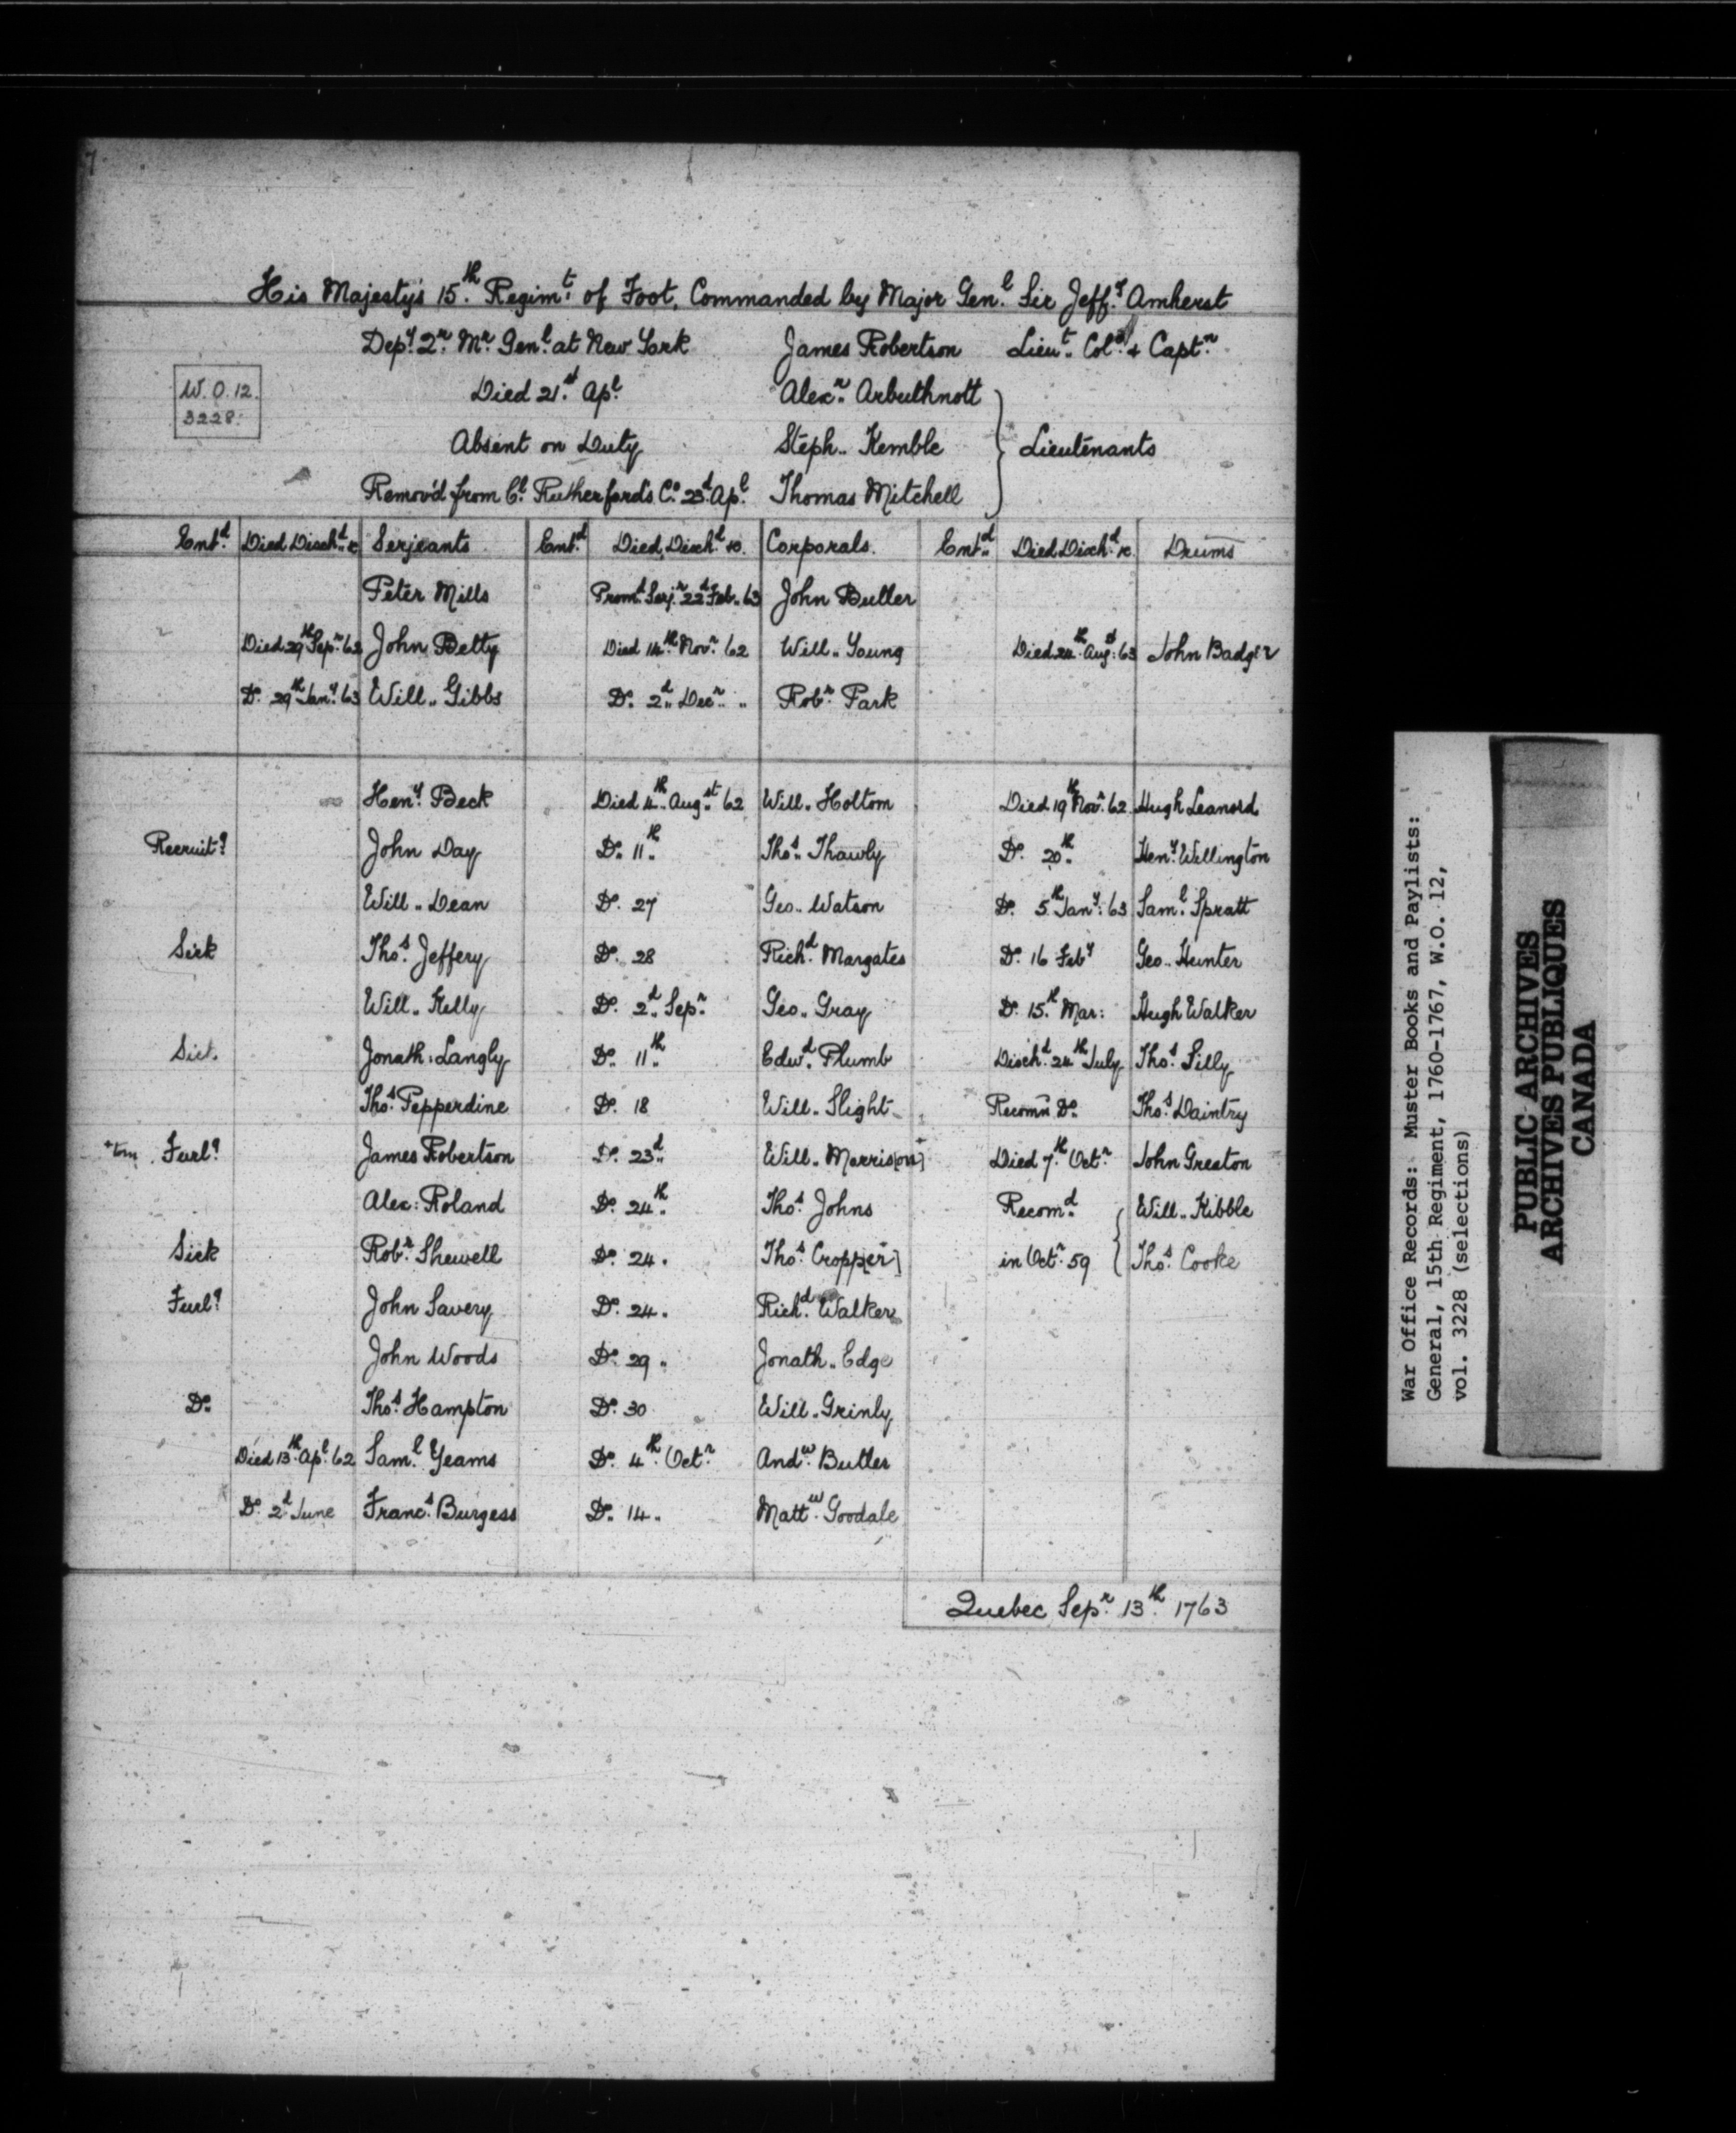 7
His Majesty's 15th Regimt of Foot, Commanded by Major Genl Sir Jeffy Amherst
Depy 2r Mr Genl at New York James Robertson Lieut Col & Captn
W.O.12.
3228.
Died 21st Apl Alexr Arbuthnott
Absent on Duty Steph.. Kemble } Lieutenants
Remov'd from Cl Rutherfords Co 23d Apl Thomas Mitchell
Entd Died Dischd &c Serjeants Entd Died, Dischd &c. Corporals. Entd Died Dischd &c. Drums
Peter Mills Promd Serjt 22d Feb.. 63 John Butler
Died 29th Sepr 62 John Betty Died 14th Novr 62 Will.. Young Died 24th Augst: 63 John Badger
Do 29th Jany 63 Will.. Gibbs Do 2d Decr .. Robt Park
Heny Beck Died 4th Augst 62 Will.. Holtom Died 19th Novr 62 Hugh Leanord
Recruitg John Day Do 11th Thos Thawly Do 20th Heny Wellington
Will.. Dean Do 27 Geo.. Watson Do 5th Jany: 63 Saml Spratt
Sick Thos Jeffery Do 28 Richd Margates Do 16 Feby Geo.. Hunter
Will.. Kelly Do 2d Sepr Geo.. Gray Do 15th Mar: Hugh Walker
Sick Jonath: Langly Do 11th Edwd Plumb Dischd 24th July Thos Silly
Thos Pepperdine Do 18 Will.. Slight Recomn Do Thos Daintry
+torn Furlg James Robertson Do 23d Will.. Morris[on]+ Died 7th Octr John Greaton
Alex: Roland Do 24th Thos Johns Recomd { Will.. Kibble
Sick Robt Shewell Do 24. Thos Cropp[er] in Octr 59 { Thos Cooke
Furlg John Savery Do 24. Richd Walker
John Woods Do 29. Jonath.. Edge
Do Thos Hampton Do 30 Will.. Grinly
Died 13th Apl 62 Saml Yeams Do 4th Octr Andw Butler
Do 2d June Francs Burgess Do 14. Mattw Goodale
Quebec Sepr 13th 1763
War Office Records: Muster Books and Paylists:
General, 15th Regiment, 1760-1767, W.O. 12,
vol. 3228 (selections)
PUBLIC ARCHIVES
ARCHIVES PUBLIQUES
CANADA